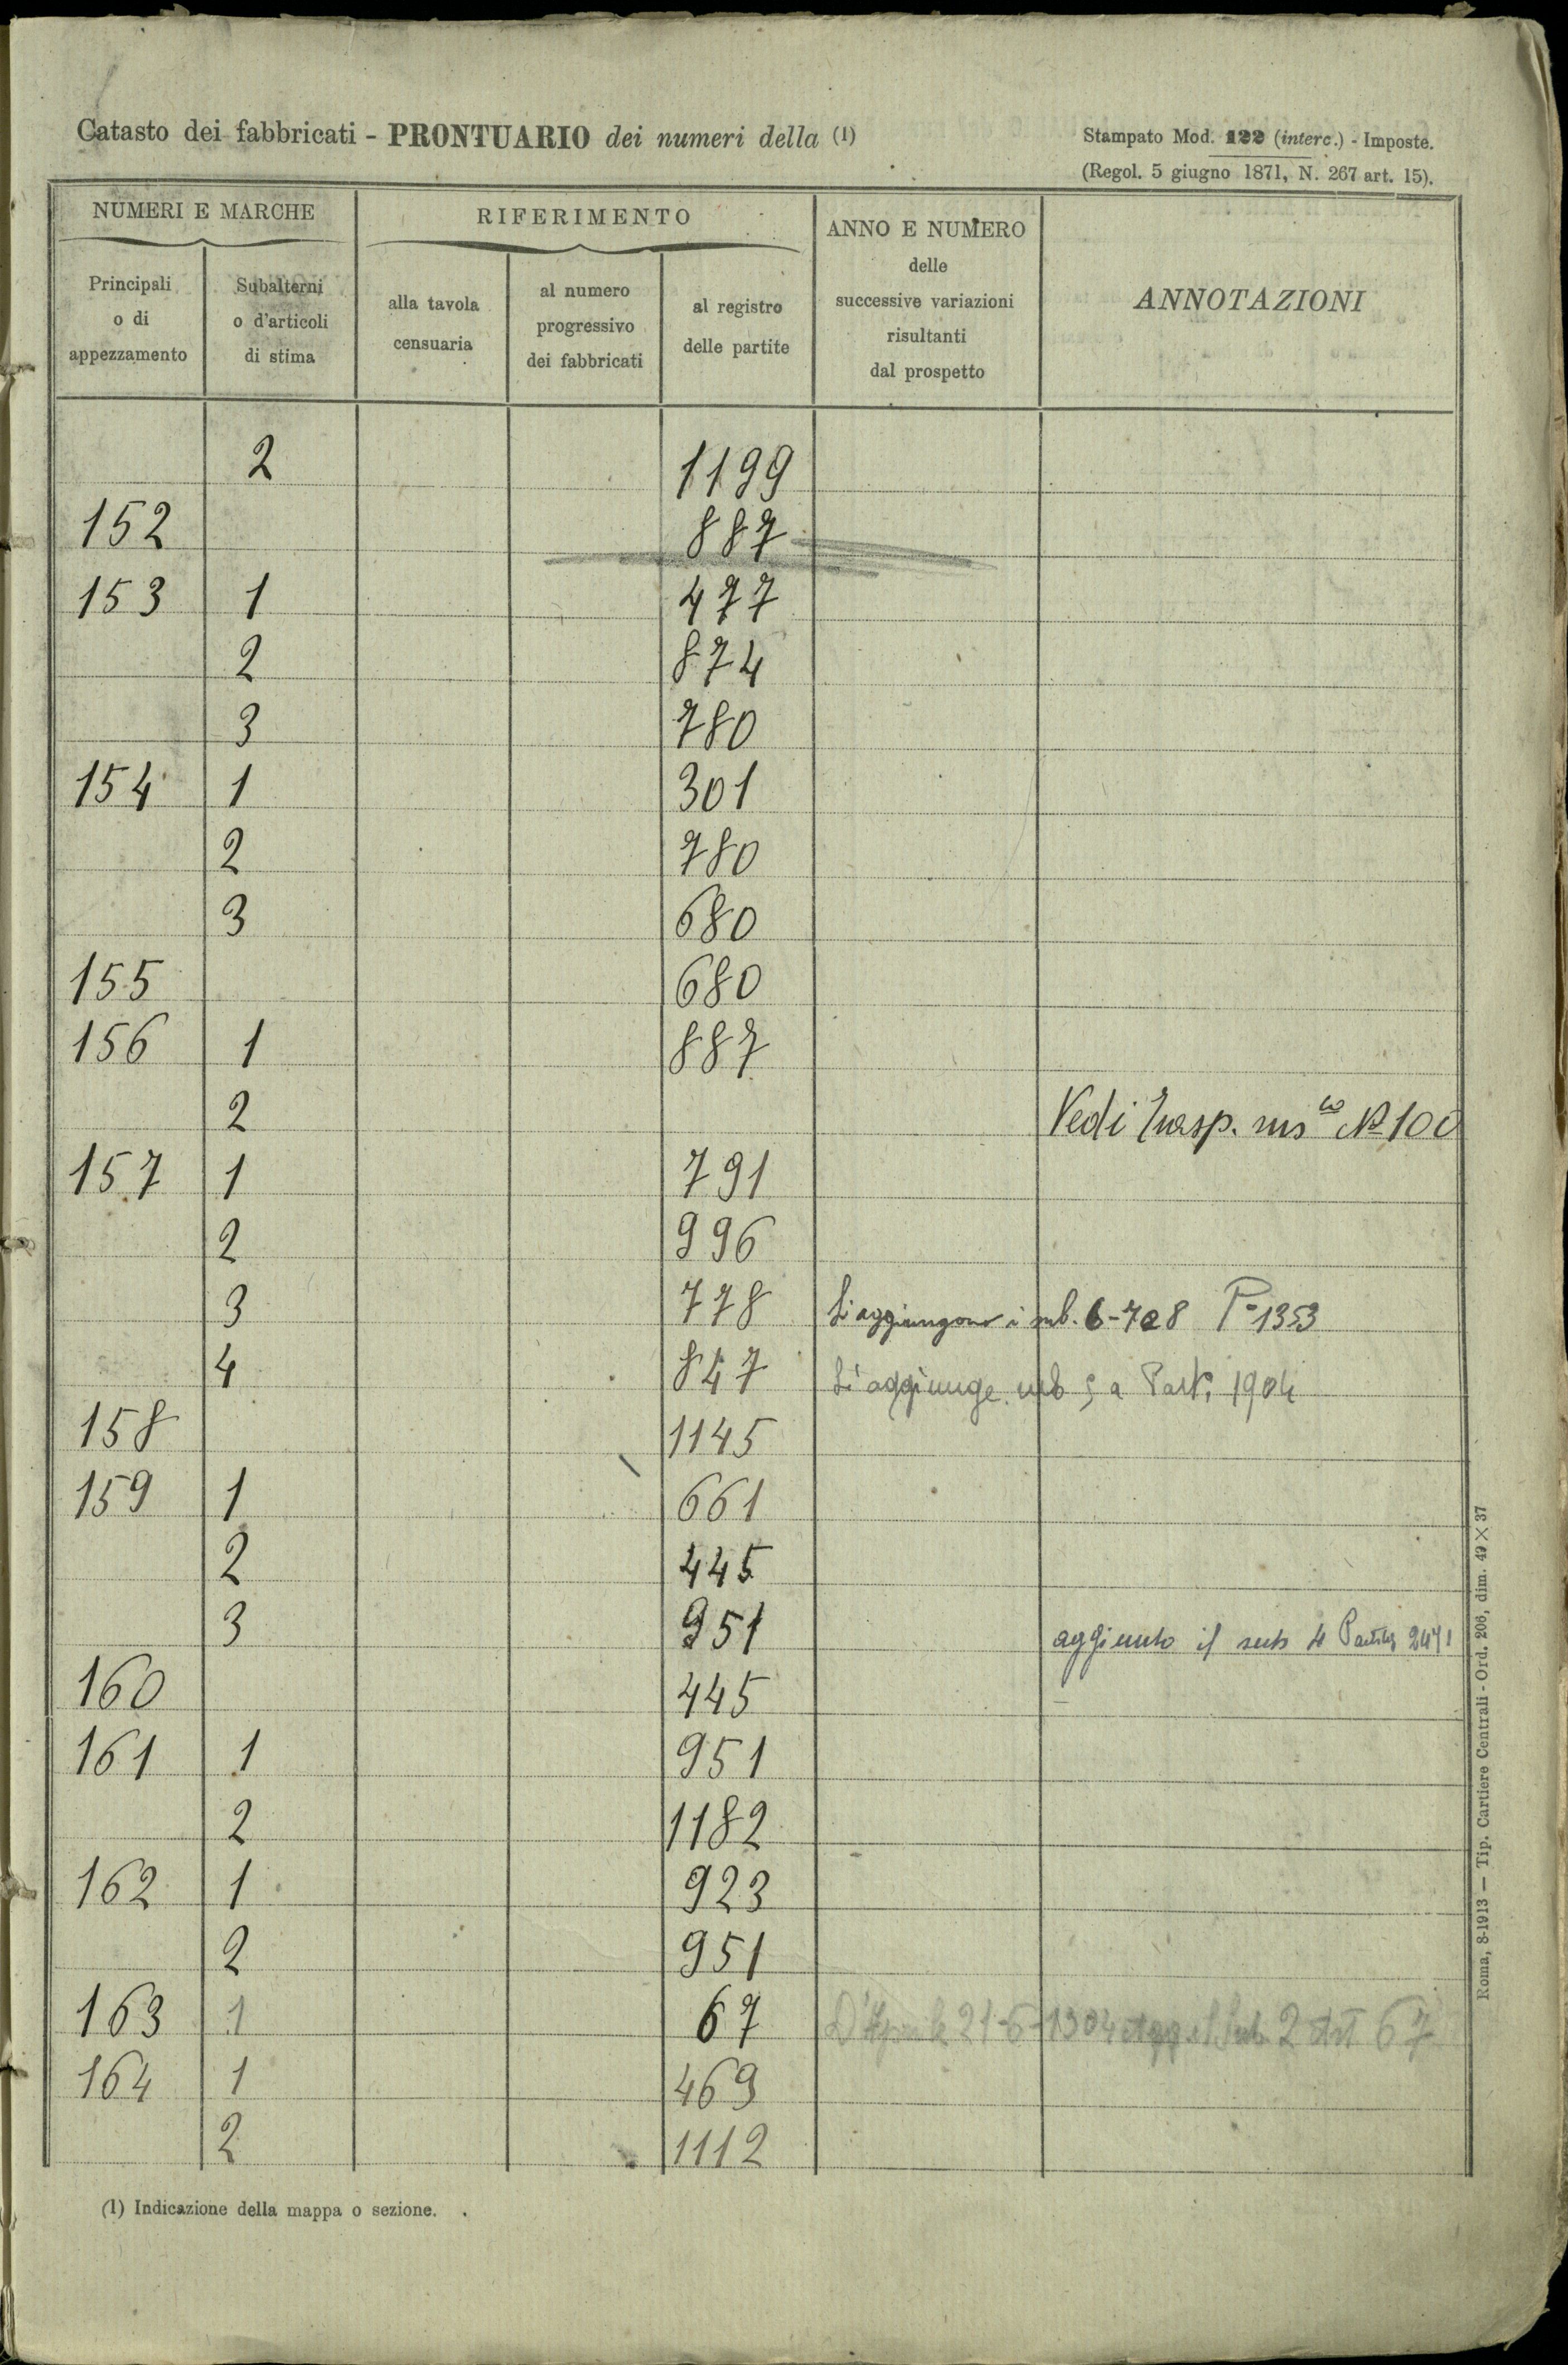 Catasto dei fabbricati - PRONTUARIO dei numeri della (1)
Stampato Mod. 122 (interc.) - Imposte.
(Regol. 5 giugno 1871, N. 267 art. 15).
NUMERI E MARCHE
RIFERIMENTO
ANNO E NUMERO
delle
successive variazioni
risultanti
dal prospetto
ANNOTAZIONI
Principali
o di
appezzamento
Subalterni
o d'articoli
di stima
alla tavola
censuaria
al numero
progressivo
dei fabbricati
al registro
delle partite
2 1199
152 887
153 1 477
2 874
3 780
154 1 301
2 780
3 680
155 680
156 1 887
2 Vedi N° 100
157 1 791
2 996
3 778 Si aggiungono i sub. 6-7 e 8 P. 1353
4 847 Si aggiunge sub 5 a Part. 1904
158 1145
159 1 661
2 445
3 951 aggiunto il sub 4 Partita
160 445
161 1 951
2 1182
162 1 923
2 951
163 1 67 2 Art 67
164 1 469
2 1112
(1) Indicazione della mappa o sezione.
Roma, 8-1913 — Tip. Cartiere Centrali - Ord. 206, dim. 49 × 37